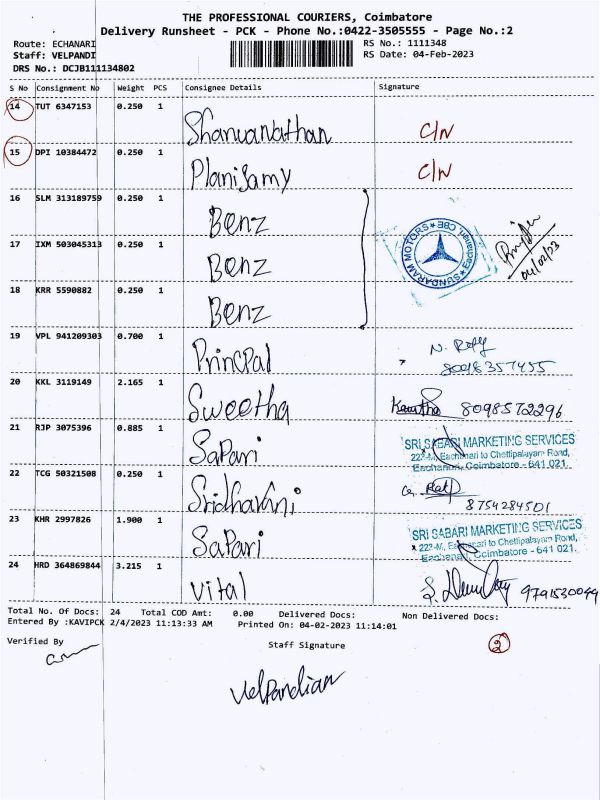 THE PROFESSIONAL COURIERS, Coimbatore
Delivery Runsheet - PCK - Phone No.:0422-3505555 - Page No.:2
Route: ECHANARI RS No.: 1111348
Staff: VELPANDI RS Date: 04-Feb-2023
DRS No.: DCJB111134802
S No Consignment No Weight PCS Consignee Details Signature
14 TUT 6347153 0.250 1
Sharvanathan C/N
15 DPI 10384472 0.250 1
Planisamy C/N
16 SLM 313189759 0.250 1
Benz
17 IXM 503045313 0.250 1
Benz
SUNDARAM MOTORS
04/02/23
18 KRR 5590882 0.250 1
Benz
19 VPL 941209303 0.700 1
Princpal
20 KKL 3119149 2.165 1
Sweetha 8098572296
21 RJP 3075396 0.885 1
Sapari
SRI SABARI MARKETING SERVICES
Eachanari to Chettipalayam Road,
Eachanari, Coimbatore - 641 021.
22 TCG 50321508 0.250 1
8754284501
23 KHR 2997826 1.900 1
Sapari
SRI SABARI MARKETING SERVICES
to Chettipalayam Road,
Coimbatore - 641 021.
24 HRD 364869844 3.215 1
Vital 9791530049
Total No. Of Docs: 24 Total COD Amt: 0.00 Delivered Docs: Non Delivered Docs:
Entered By :KAVIPCK 2/4/2023 11:13:33 AM Printed On: 04-02-2023 11:14:01
Verified By Staff Signature
2
Velpandian